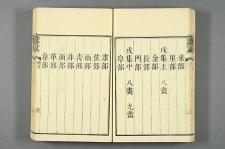 釆部
里部
戌集上 八畫
金部
長部
門部
戌集中 八畫 九畫
阜部
隶部
隹部
雨部
靑部
非部
面部
革部
韋部